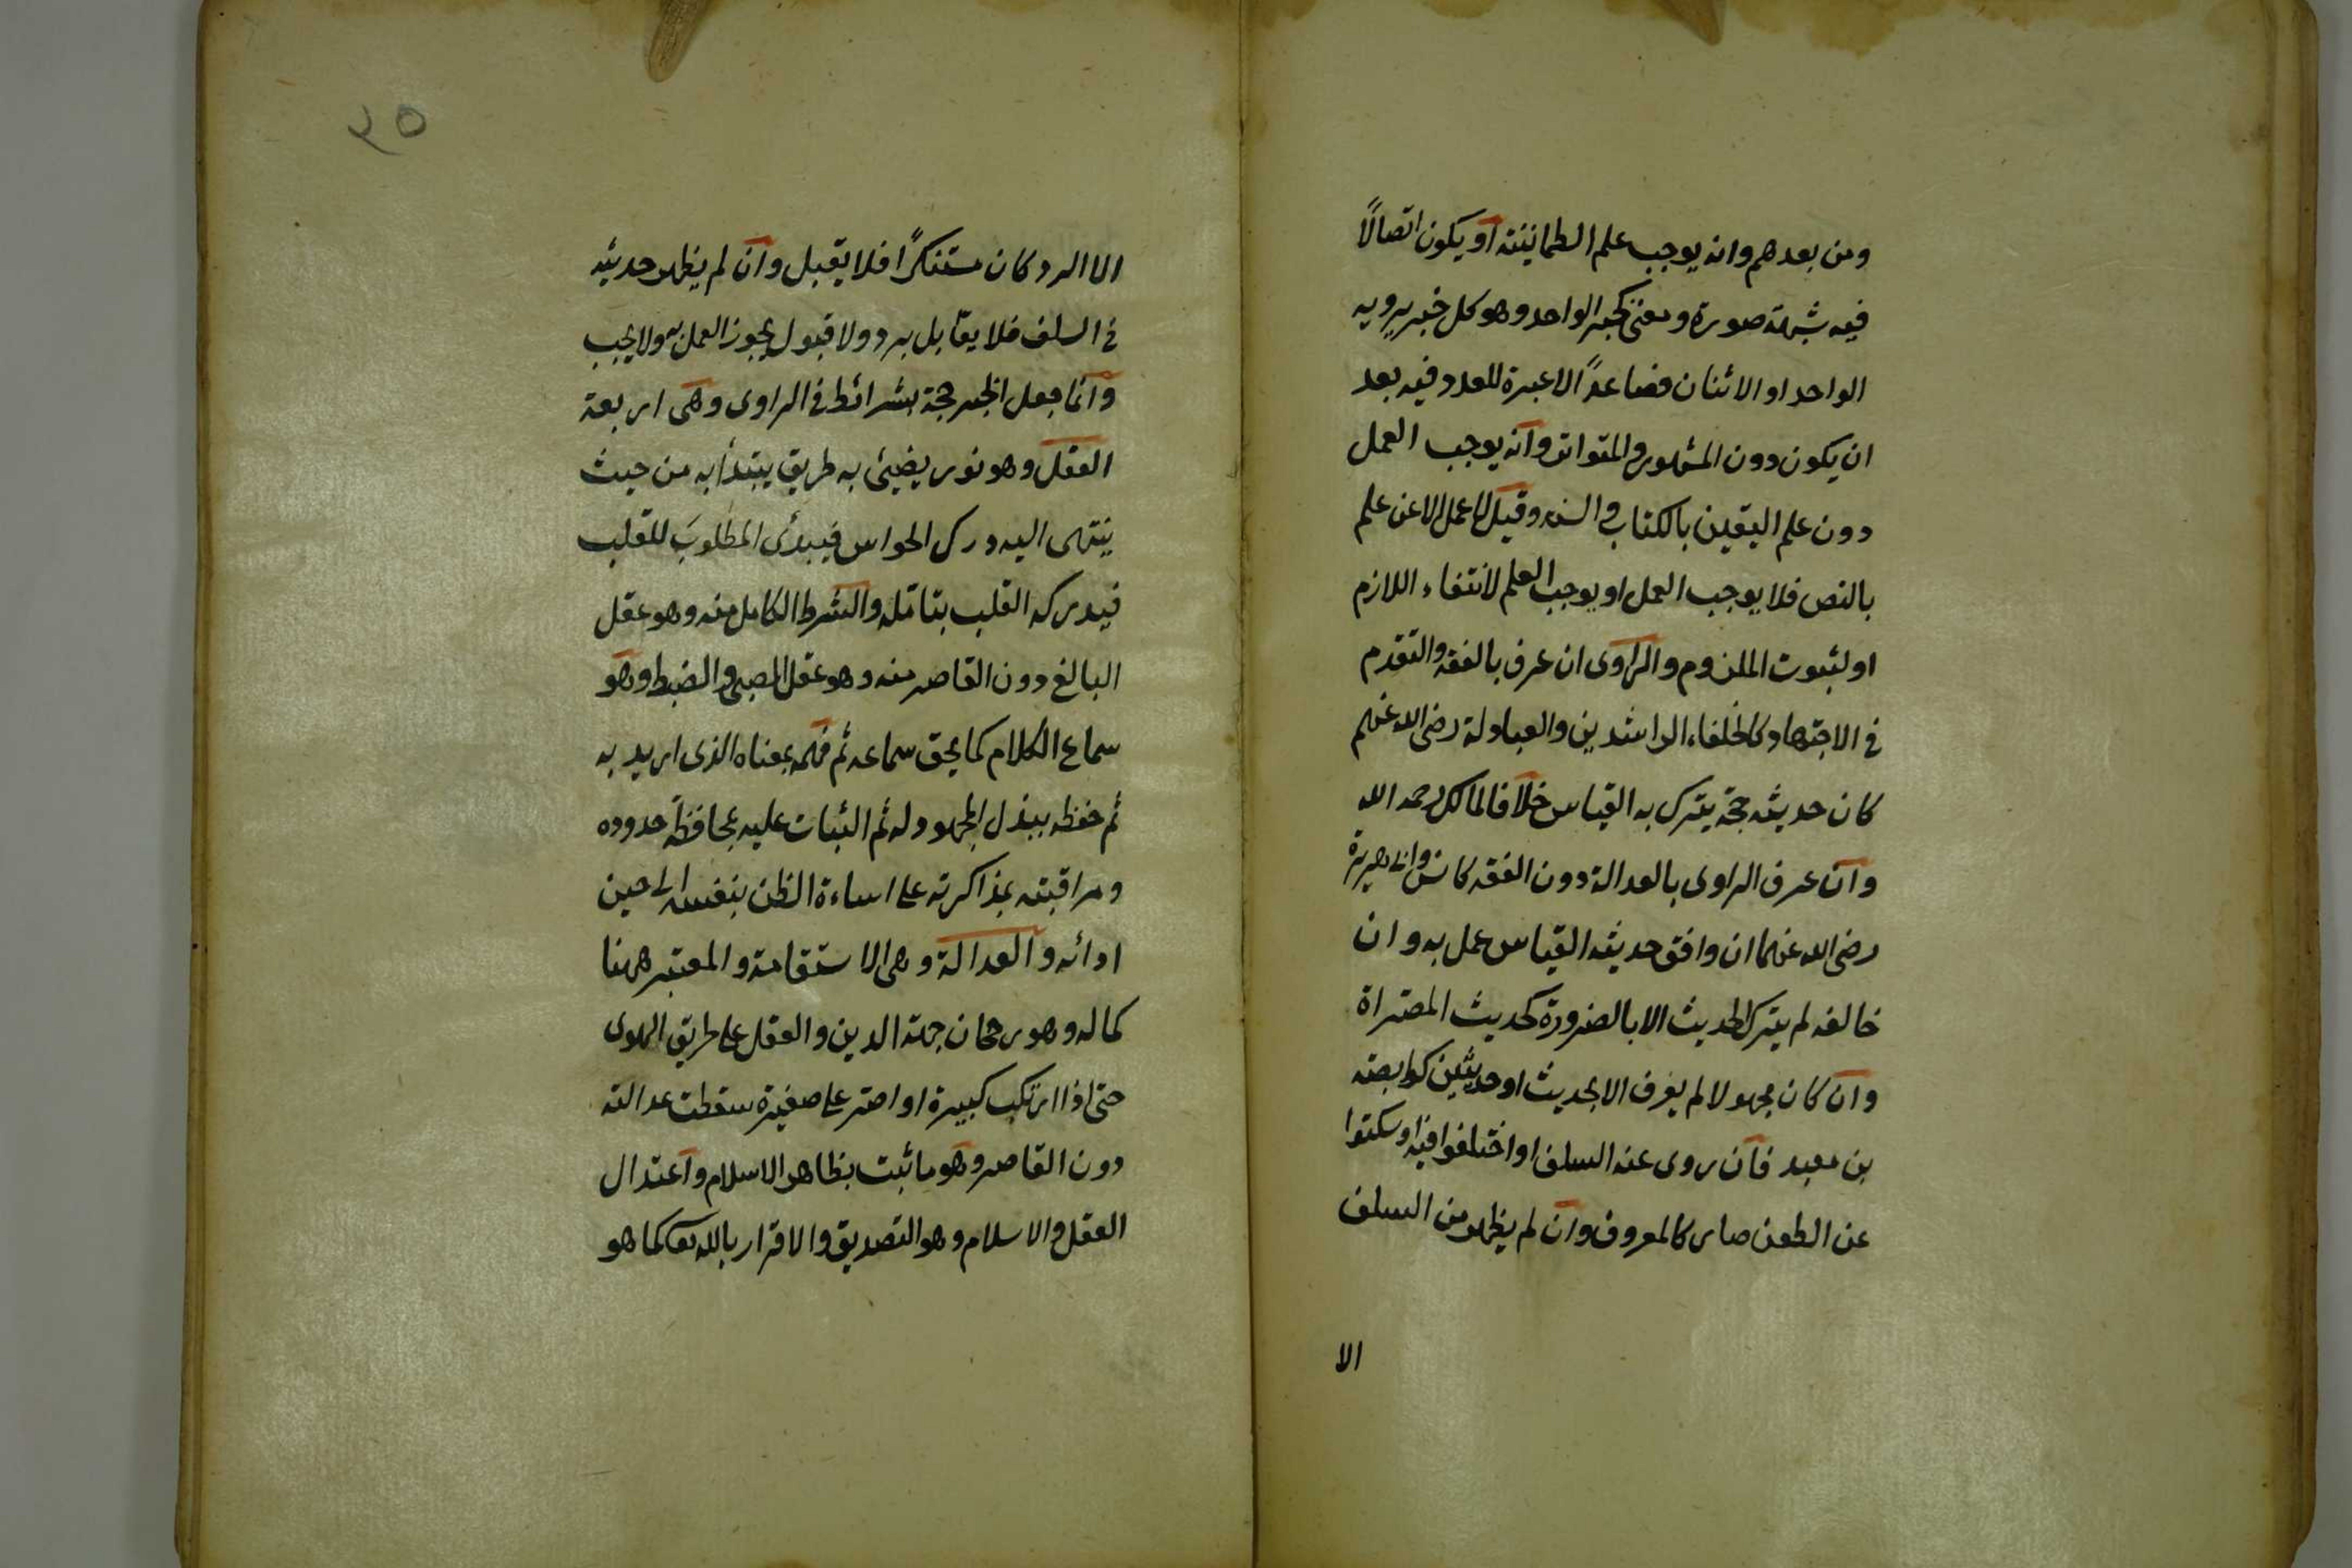 ومن بعدهم وانه يوجب علم الطمانينة او يكون اتصالاً
فيه شبهة صورة ومعنى كخبر الواحد وهو كل خبر يرويه
الواحد او الاثنان فصاعداً لا عبرة للعدد فيه بعد
ان يكون دون المشهور والمتواتر وانه يوجب العمل
دون علم اليقين بالكتاب والسنه وقيل لا عمل الا عن علم
بالنص فلا يوجب العمل او يوجب العلم لانتفاء اللازم
او لثبوت الملزوم والراوى ان عرف بالفقه والتقدم
فى الاجتهاد كالخلفاء الراشدين والعبادلة رضى الله عنهم
كان حديثه حجة يترك به القياس خلافا لمالك رحمه الله
وان عرف الراوى بالعدالة دون الفقه كانس وابى هريرة
رضى الله عنهما ان وافق حديثه القياس عمل به وان
خالفه لم يترك الحديث الا بالضرورة كحديث المصراة
وان كان مجهولا لم يعرف الا بحديث او حديثين كوابصة
بن معبد فان روى عنه السلف او اختلفوا فيه او سكتوا
عن الطعن صار كالمعروف وان لم يظهر من السلف
الا
٣٥
الا الرد كان مستنكرًا فلا يقبل وان لم يظهر حديثه
فى السلف فلا يقابل برد ولا قبول يجوز العمل به ولا يجب
وانما جعل الخبر حجة بشرائط فى الراوى وهى اربعة
العقل وهو نور يضيئ به طريق يبتدأ به من حيث
ينتهى اليه درك الحواس فيبدئ المطلوبَ للقلب
فيدركه القلب بتأمّله والشرط الكامل منه وهو عقل
البالغ دون القاصر منه وهو عقل الصبى والضبط وهو
سماع الكلام كما يحق سماعه ثم فهمه بمعناه الذى اريد به
ثم حفظه ببذل المجهود له ثم الثبات عليه بمحافظة حدوده
ومراقبته بمذاكرته على اساءة الظن بنفسه الى حين
ادائه والعدالة وهى الاستقامة والمعتبر ههنا
كماله وهو رجحان جهة الدين والعقل على طريق الهوى
حتى اذا ارتكب كبيرة او اصر على صغيرة سقطت عدالته
دون القاصر وهو ما ثبت بظاهر الاسلام واعتدال
العقل والاسلام وهو التصديق والاقرار بالله تعا كما هو